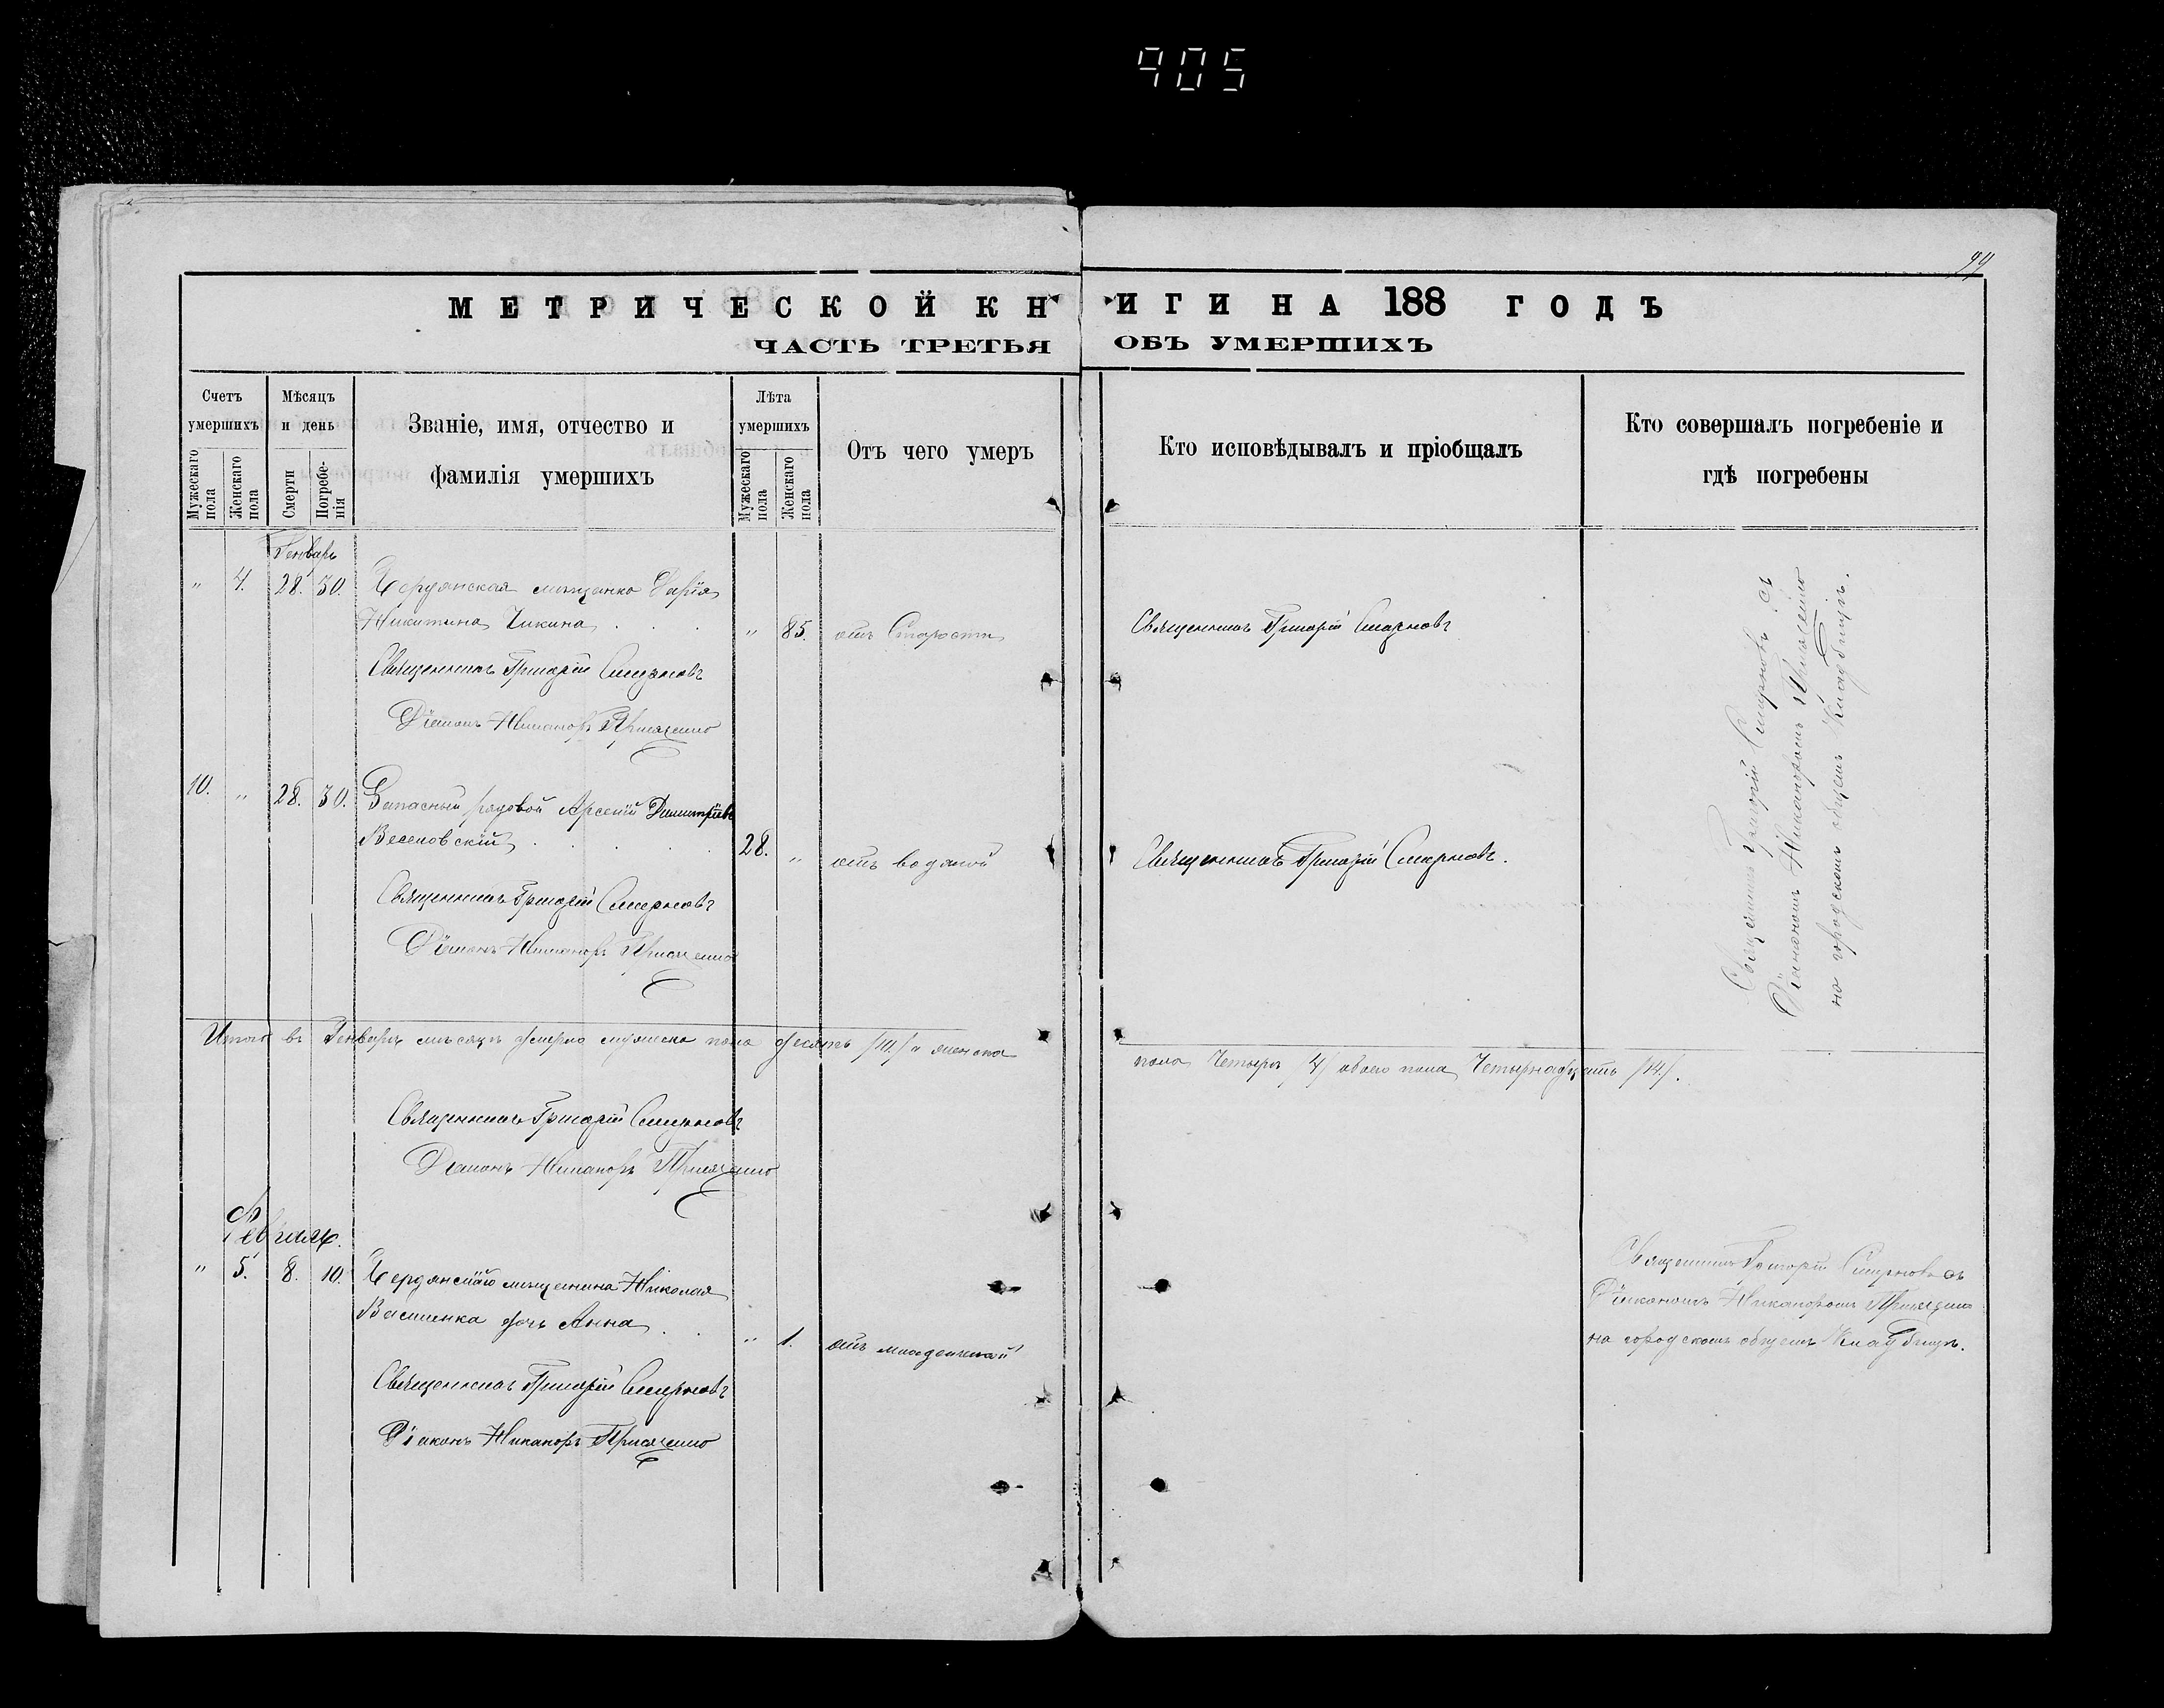 905
99
МЕТРИЧЕСКОЙ КНИГИ НА 188 ГОДЪ
ЧАСТЬ ТРЕТЬЯ ОБЪ УМЕРШИХЪ
Счетъ умершихъ
Мужескаго пола
Женскаго пола
Мѣсяцъ и день
Смерти
Погребенія
Званіе, имя, отчество и
фамилія умершихъ
Лѣта умершихъ
Мужескаго пола
Женскаго пола
Отъ чего умеръ
Кто исповѣдывалъ и пріобщалъ
Кто совершалъ погребеніе и
гдѣ погребены
Генварь
" 4. 28. 30. мѣщанка Дарія
Никитина Чикина " 85. отъ Старости Священникъ Григорій Смирновъ
Священникъ Григорій Смирновъ
Діаконъ Никаноръ
10. " 28. 30. Запасный рядовой Арсеній Димитріевъ
Веселовскій 28. " отъ водяной Священникъ Григорій Смирновъ.
Священникъ Григорій Смирновъ
Діаконъ Никаноръ
Священникъ Григорій Смирновъ съ
Діакономъ Никаноромъ
на городскомъ общемъ Кладбищѣ.
Итого въ Генварѣ мѣсяцѣ умерло мужеска пола десять /10./ и женска
пола Четыре /4/ обоего пола Четырнадцать /14./.
Священникъ Григорій Смирновъ
Діаконъ Никаноръ
Февраль.
" 5. 8. 10. мѣщанина Николая
Василенка дочь Анна " 1. отъ младенческой
Священникъ Григорій Смирновъ
Діаконъ Никаноръ
Священникъ Григорій Смирновъ съ
Діакономъ Никаноромъ
на городскомъ общемъ Кладбищѣ.